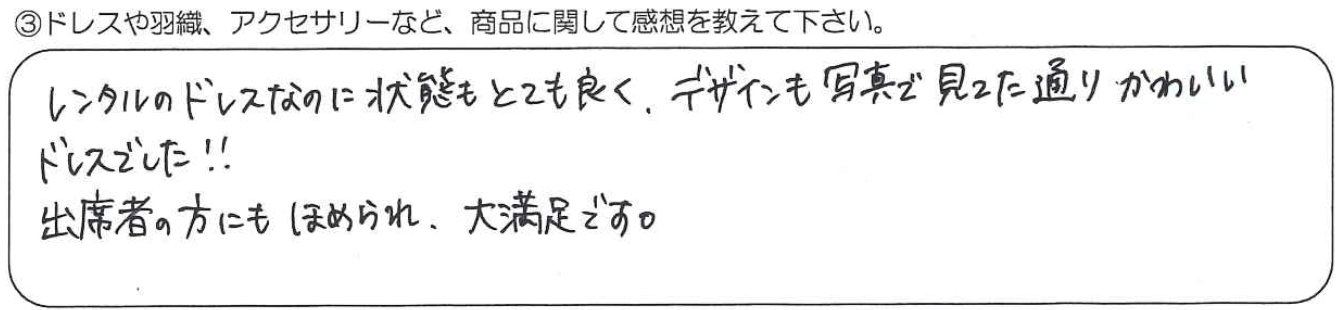 ③ドレスや羽織、アクセサリーなど、商品に関して感想を教えて下さい。
レンタルのドレスなのに状態もとても良く、デザインも写真で見てた通りかわいい
ドレスでした!!
出席者の方にもほめられ、大満足です。